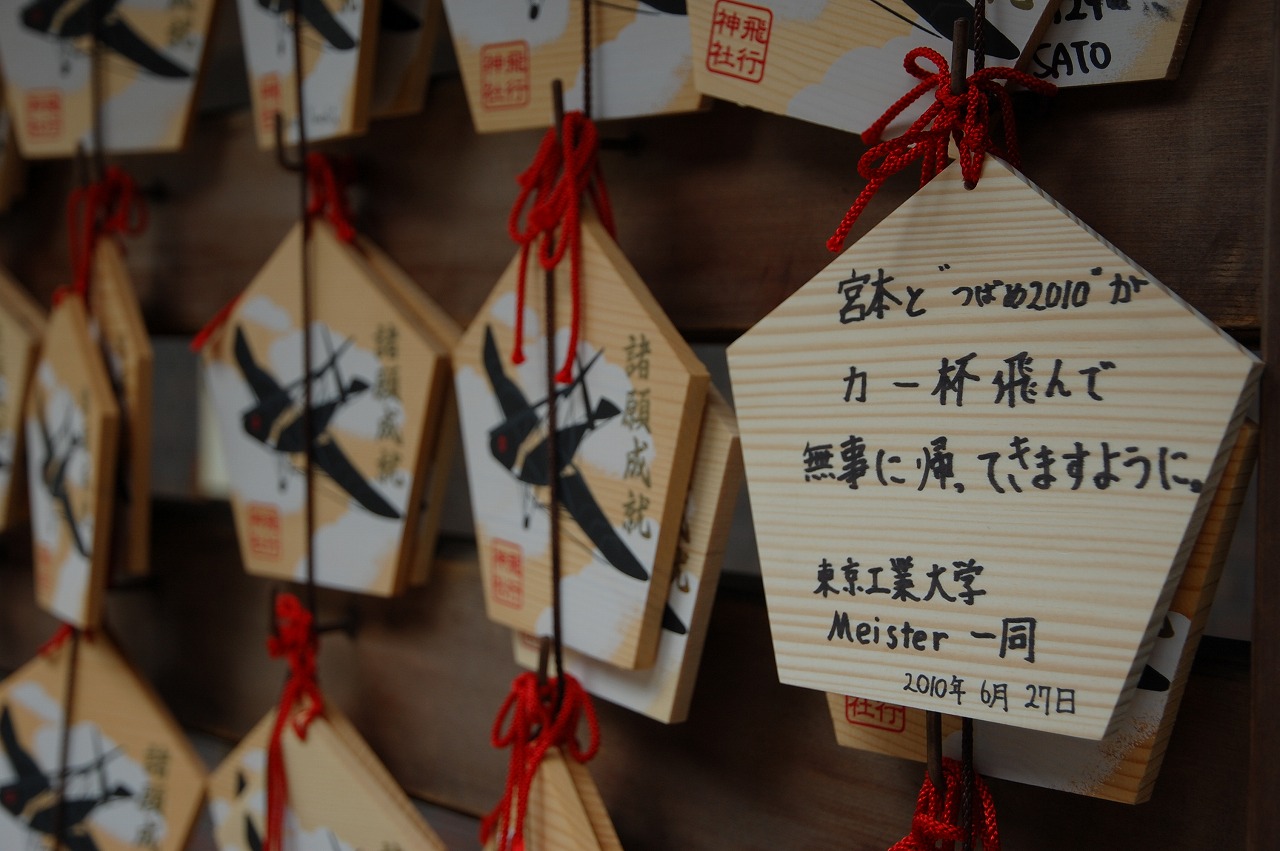 飛行
神社
飛行
神社
SATO
宮本と"つばめ2010"が
力一杯飛んで
無事に帰ってきますように。
東京工業大学
Meister 一同
2010年 6月 27日
諸願成就
飛行
神社
諸願成就
飛行
神社
諸願成